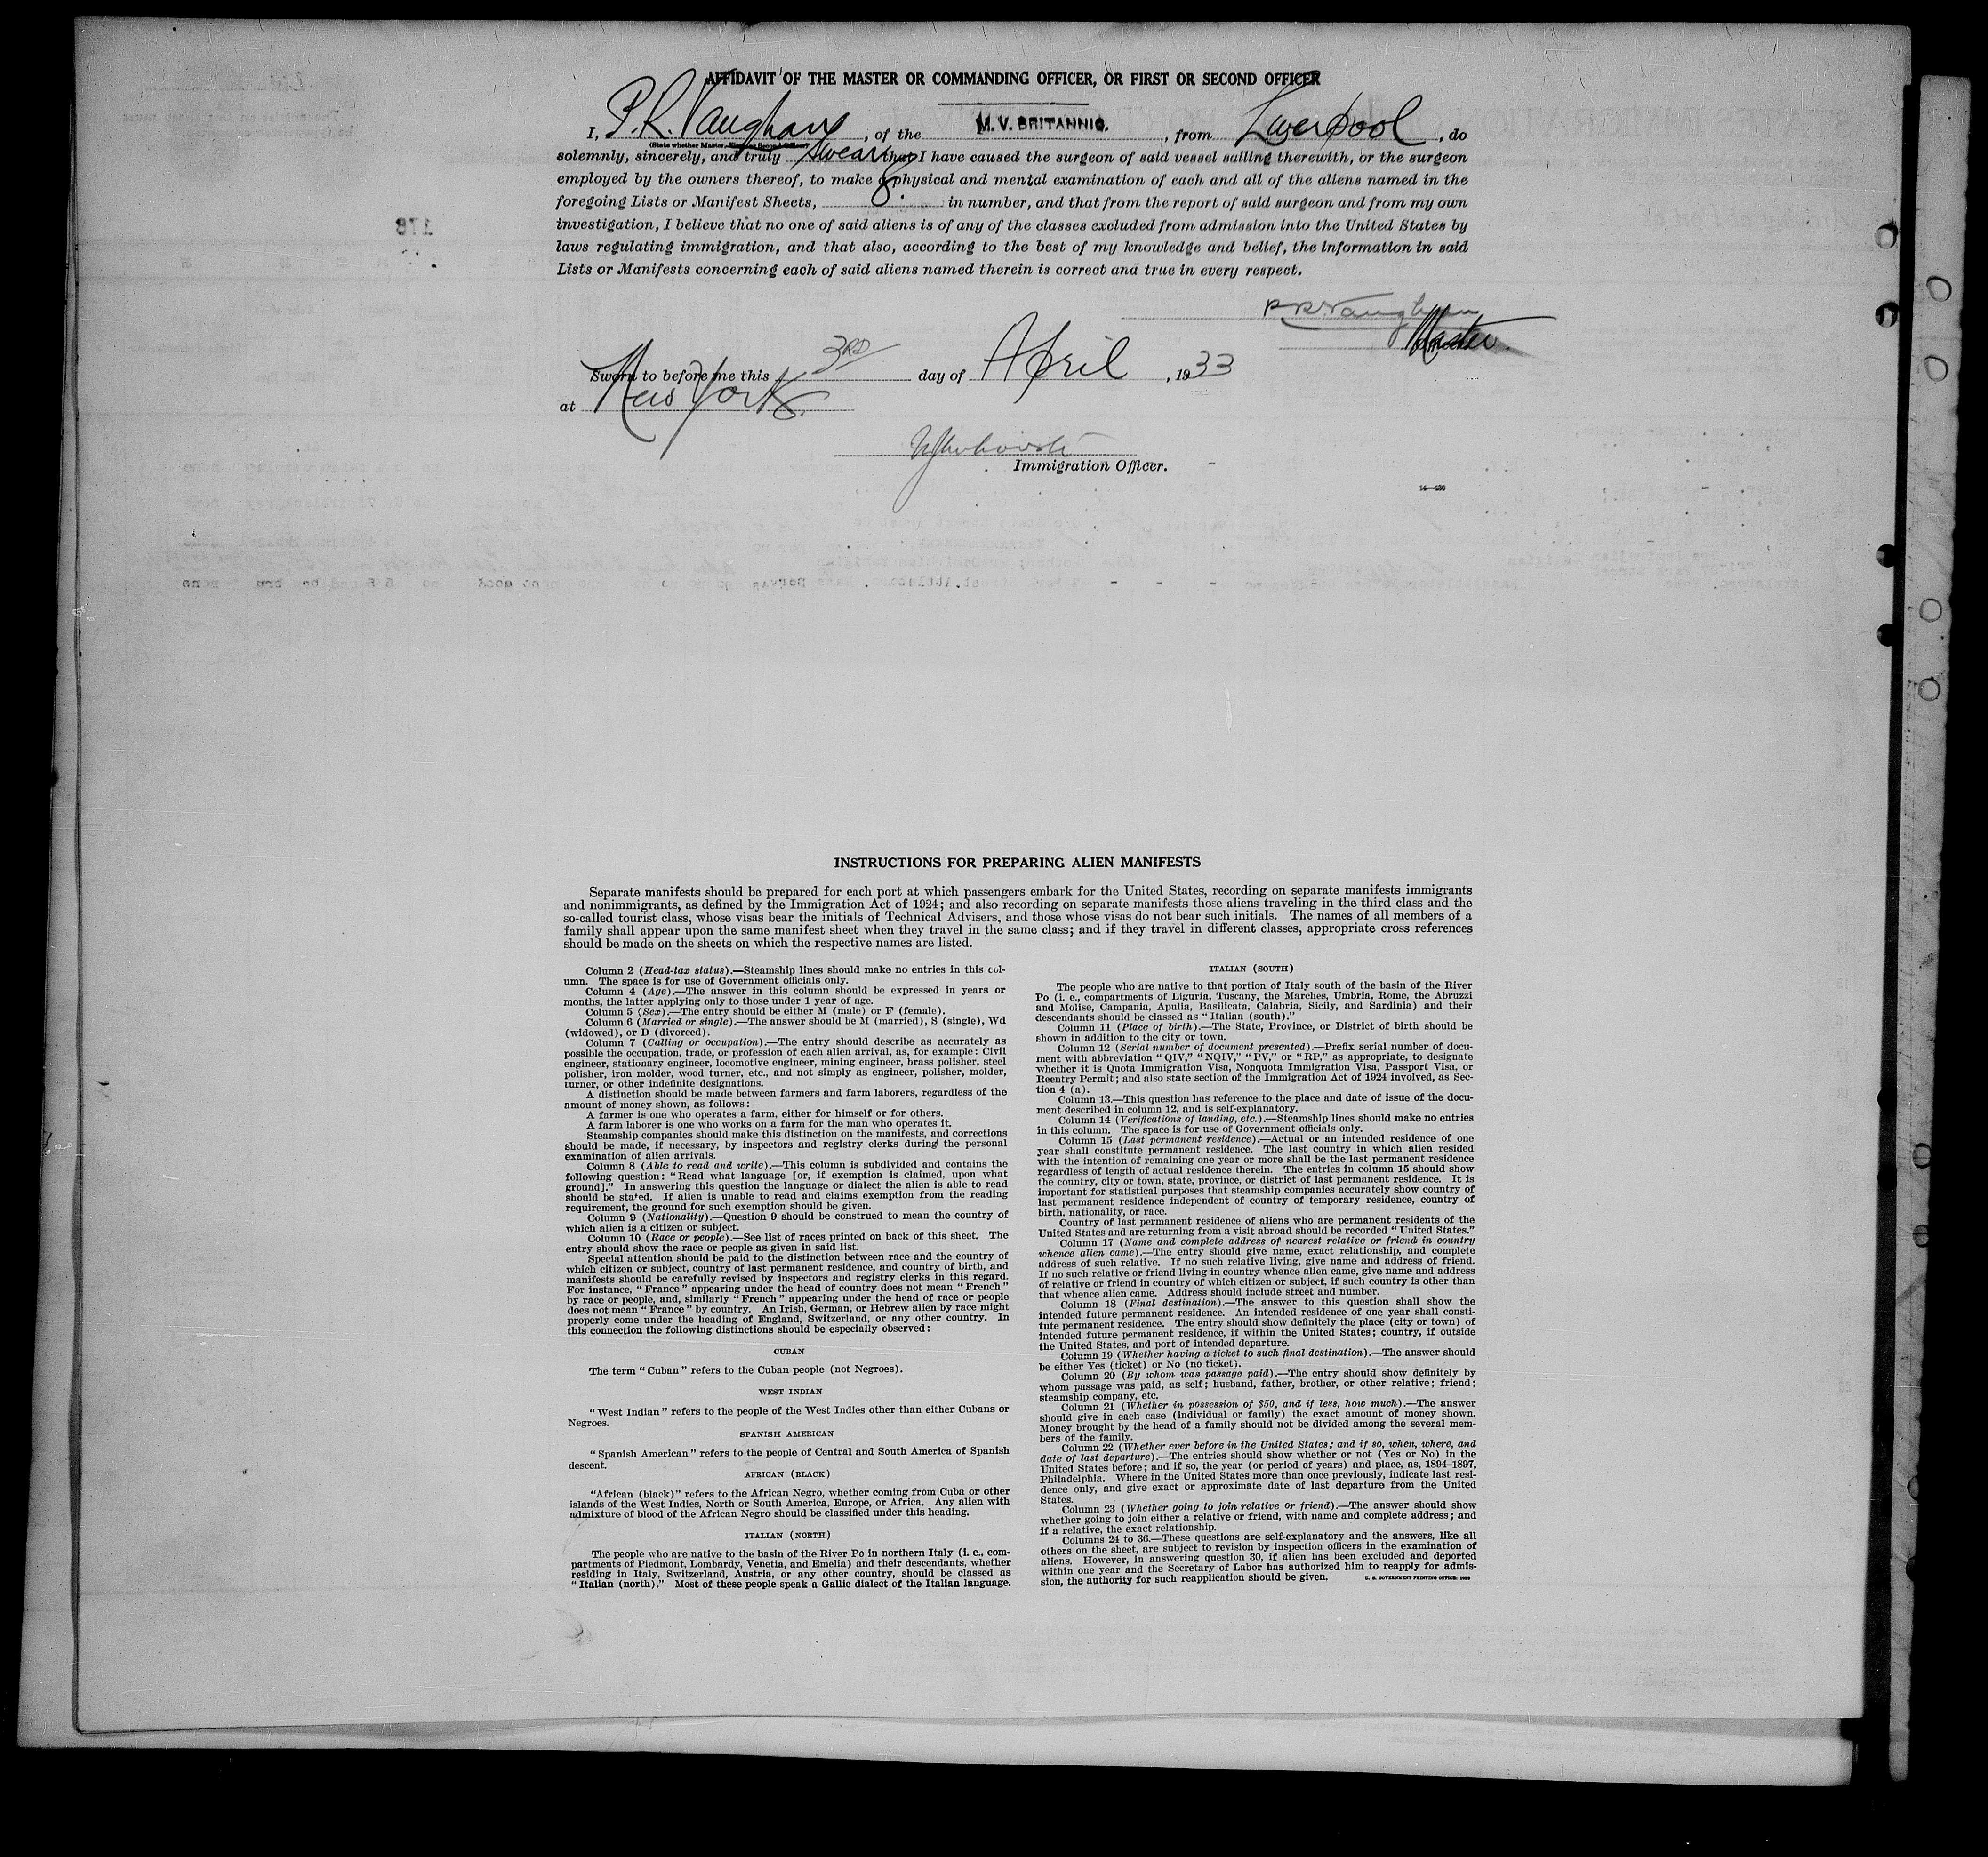 AFFIDAVIT OF THE MASTER OR COMMANDING OFFICER, OR FIRST OR SECOND OFFICER
I, P. R. Vaughan, of the M. V. BRITANNIC. , from Liverpool, do
(State whether Master, First or Second Officer)
solemnly, sincerely, and truly swear that I have caused the surgeon of said vessel sailing therewith, or the surgeon
employed by the owners thereof, to make a physical and mental examination of each and all of the aliens named in the
foregoing Lists or Manifest Sheets, 8. in number, and that from the report of said surgeon and from my own
investigation, I believe that no one of said aliens is of any of the classes excluded from admission into the United States by
laws regulating immigration, and that also, according to the best of my knowledge and belief, the information in said
Lists or Manifests concerning each of said aliens named therein is correct and true in every respect.
P. R. Vaughan
Master.
Sworn to before me this 3RD day of April, 1933
at New York.
Immigration Officer.
INSTRUCTIONS FOR PREPARING ALIEN MANIFESTS
Separate manifests should be prepared for each port at which passengers embark for the United States, recording on separate manifests immigrants
and nonimmigrants, as defined by the Immigration Act of 1924; and also recording on separate manifests those aliens traveling in the third class and the
so-called tourist class, whose visas bear the initials of Technical Advisers, and those whose visas do not bear such initials. The names of all members of a
family shall appear upon the same manifest sheet when they travel in the same class; and if they travel in different classes, appropriate cross references
should be made on the sheets on which the respective names are listed.
Column 2 (Head-tax status).—Steamship lines should make no entries in this col-
umn. The space is for use of Government officials only.
Column 4 (Age).—The answer in this column should be expressed in years or
months, the latter applying only to those under 1 year of age.
Column 5 (Sex).—The entry should be either M (male) or F (female).
Column 6 (Married or single).—The answer should be M (married), S (single), Wd
(widowed), or D (divorced).
Column 7 (Calling or occupation).—The entry should describe as accurately as
possible the occupation, trade, or profession of each alien arrival, as, for example: Civil
engineer, stationary engineer, locomotive engineer, mining engineer, brass polisher, steel
polisher, iron molder, wood turner, etc., and not simply as engineer, polisher, molder,
turner, or other indefinite designations.
A distinction should be made between farmers and farm laborers, regardless of the
amount of money shown, as follows:
A farmer is one who operates a farm, either for himself or for others.
A farm laborer is one who works on a farm for the man who operates it.
Steamship companies should make this distinction on the manifests, and corrections
should be made, if necessary, by inspectors and registry clerks during the personal
examination of alien arrivals.
Column 8 (Able to read and write).—This column is subdivided and contains the
following question: "Read what language [or, if exemption is claimed, upon what
ground]." In answering this question the language or dialect the alien is able to read
should be stated. If alien is unable to read and claims exemption from the reading
requirement, the ground for such exemption should be given.
Column 9 (Nationality).—Question 9 should be construed to mean the country of
which alien is a citizen or subject.
Column 10 (Race or people).—See list of races printed on back of this sheet. The
entry should show the race or people as given in said list.
Special attention should be paid to the distinction between race and the country of
which citizen or subject, country of last permanent residence, and country of birth, and
manifests should be carefully revised by inspectors and registry clerks in this regard.
For instance, "France" appearing under the head of country does not mean "French"
by race or people, and, similarly "French" appearing under the head of race or people
does not mean "France" by country. An Irish, German, or Hebrew alien by race might
properly come under the heading of England, Switzerland, or any other country. In
this connection the following distinctions should be especially observed:
CUBAN
The term "Cuban" refers to the Cuban people (not Negroes).
WEST INDIAN
"West Indian" refers to the people of the West Indies other than either Cubans or
Negroes.
SPANISH AMERICAN
"Spanish American" refers to the people of Central and South America of Spanish
descent.
AFRICAN (BLACK)
"African (black)" refers to the African Negro, whether coming from Cuba or other
islands of the West Indies, North or South America, Europe, or Africa. Any alien with
admixture of blood of the African Negro should be classified under this heading.
ITALIAN (NORTH)
The people who are native to the basin of the River Po in northern Italy (i. e., com-
partments of Piedmont, Lombardy, Venetia, and Emelia) and their descendants, whether
residing in Italy, Switzerland, Austria, or any other country, should be classed as
"Italian (north)." Most of these people speak a Gallic dialect of the Italian language.
ITALIAN (SOUTH)
The people who are native to that portion of Italy south of the basin of the River
Po (i. e., compartments of Liguria, Tuscany, the Marches, Umbria, Rome, the Abruzzi
and Molise, Campania, Apulia, Basilicata, Calabria, Sicily, and Sardinia) and their
descendants should be classed as "Italian (south)."
Column 11 (Place of birth).—The State, Province, or District of birth should be
shown in addition to the city or town.
Column 12 (Serial number of document presented).—Prefix serial number of docu-
ment with abbreviation "QIV," "NQIV," "PV," or "RP," as appropriate, to designate
whether it is Quota Immigration Visa, Nonquota Immigration Visa, Passport Visa, or
Reentry Permit; and also state section of the Immigration Act of 1924 involved, as Sec-
tion 4 (a).
Column 13.—This question has reference to the place and date of issue of the docu-
ment described in column 12, and is self-explanatory.
Column 14 (Verifications of landing, etc.).—Steamship lines should make no entries
in this column. The space is for use of Government officials only.
Column 15 (Last permanent residence).—Actual or an intended residence of one
year shall constitute permanent residence. The last country in which alien resided
with the intention of remaining one year or more shall be the last permanent residence
regardless of length of actual residence therein. The entries in column 15 should show
the country, city or town, state, province, or district of last permanent residence. It is
important for statistical purposes that steamship companies accurately show country of
last permanent residence independent of country of temporary residence, country of
birth, nationality, or race.
Country of last permanent residence of aliens who are permanent residents of the
United States and are returning from a visit abroad should be recorded "United States."
Column 17 (Name and complete address of nearest relative or friend in country
whence alien came).—The entry should give name, exact relationship, and complete
address of such relative. If no such relative living, give name and address of friend.
If no such relative or friend living in country whence alien came, give name and address
of relative or friend in country of which citizen or subject, if such country is other than
that whence alien came. Address should include street and number.
Column 18 (Final destination).—The answer to this question shall show the
intended future permanent residence. An intended residence of one year shall consti-
tute permanent residence. The entry should show definitely the place (city or town) of
intended future permanent residence, if within the United States; country, if outside
the United States, and port of intended departure.
Column 19 (Whether having a ticket to such final destination).—The answer should
be either Yes (ticket) or No (no ticket).
Column 20 (By whom was passage paid).—The entry should show definitely by
whom passage was paid, as self; husband, father, brother, or other relative; friend;
steamship company, etc.
Column 21 (Whether in possession of $50, and if less, how much).—The answer
should give in each case (individual or family) the exact amount of money shown.
Money brought by the head of a family should not be divided among the several mem-
bers of the family.
Column 22 (Whether ever before in the United States; and if so, when, where, and
date of last departure).—The entries should show whether or not (Yes or No) in the
United States before; and if so, the year (or period of years) and place, as, 1894–1897,
Philadelphia. Where in the United States more than once previously, indicate last resi-
dence only, and give exact or approximate date of last departure from the United
States.
Column 23 (Whether going to join relative or friend).—The answer should show
whether going to join either a relative or friend, with name and complete address; and
if a relative, the exact relationship.
Columns 24 to 36.—These questions are self-explanatory and the answers, like all
others on the sheet, are subject to revision by inspection officers in the examination of
aliens. However, in answering question 30, if alien has been excluded and deported
within one year and the Secretary of Labor has authorized him to reapply for admis-
sion, the authority for such reapplication should be given. U. S. GOVERNMENT PRINTING OFFICE